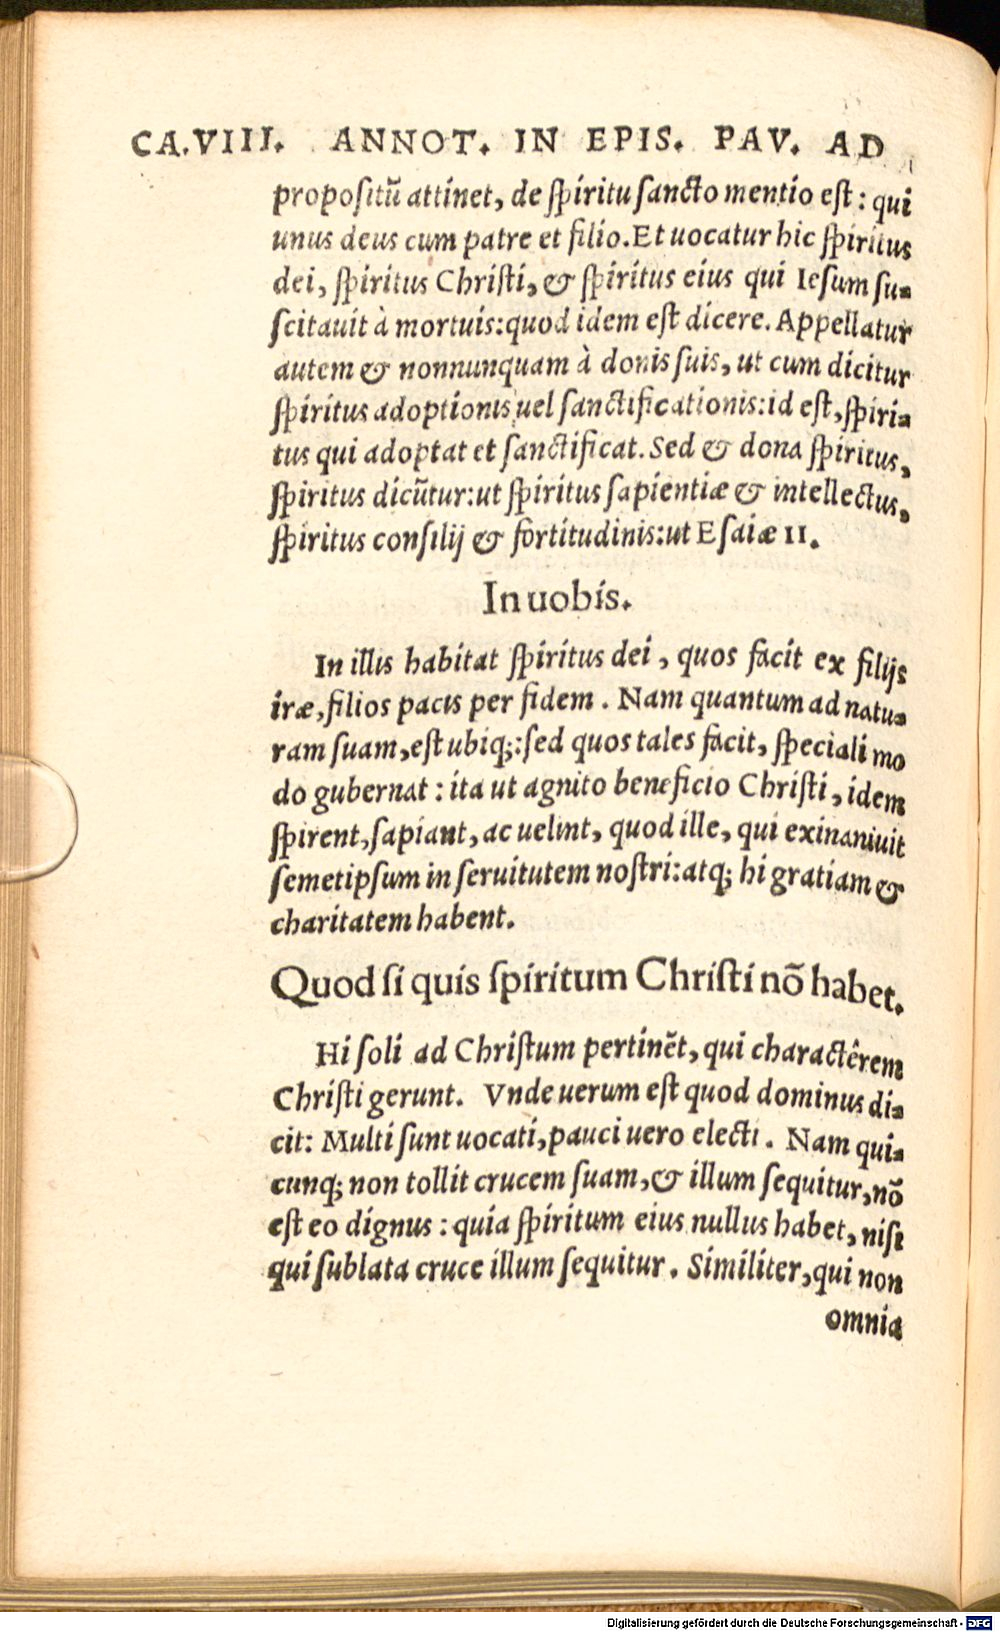 CA.VIII. ANNOT. IN EPIS. PAV. AD
propositũ attinet, de ſpiritu ſancto mentio eſt : qui
unus deus cum patre et filio. Et uocatur hic ſpiritus
dei, ſpiritus Chriſti, & ſpiritus eius qui Ieſum ſu-
ſcitauit à mortuis: quod idem eſt dicere. Appellatur
autem & nonnunquam à donis ſuis, ut cum dicitur
ſpiritus adoptionis uel ſanctificationis: id eſt, ſpiri-
tus qui adoptat et ſanctificat. Sed & dona ſpiritus,
ſpiritus dicũtur: ut ſpiritus ſapientiæ & intellectus,
ſpiritus conſilij & fortitudinis: ut Eſaiæ 11.
In uobis.
In illis habitat ſpiritus dei, quos facit ex filijs
iræ, filios pacis per fidem. Nam quantum ad natu-
ram ſuam, eſt ubiq;: ſed quos tales facit, ſpeciali mo
do gubernat : ita ut agnito beneficio Chriſti, idem
ſpirent, ſapiant, ac uelint, quod ille, qui exinaniuit
ſemetipſum in ſeruitutem noſtri: atq; hi gratiam &
charitatem habent.
Quod ſi quis ſpiritum Chriſti nõ habet.
Hi ſoli ad Chriſtum pertinẽt, qui charactêrem
Chriſti gerunt. Vnde uerum eſt quod dominus di-
cit: Multi ſunt uocati, pauci uero electi. Nam qui-
cunq; non tollit crucem ſuam, & illum ſequitur, nõ
eſt eo dignus : quia ſpiritum eius nullus habet, niſi
qui ſublata cruce illum ſequitur. Similiter, qui non
omnia
Digitalisierung gefördert durch die Deutsche Forschungsgemeinschaft - DFG